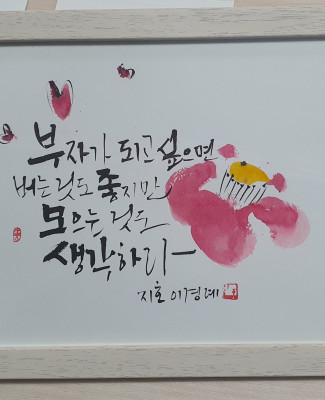 부자가 되고 싶으면
버는 것도 좋지만
모으는 것도
생각하라
지호 이경례